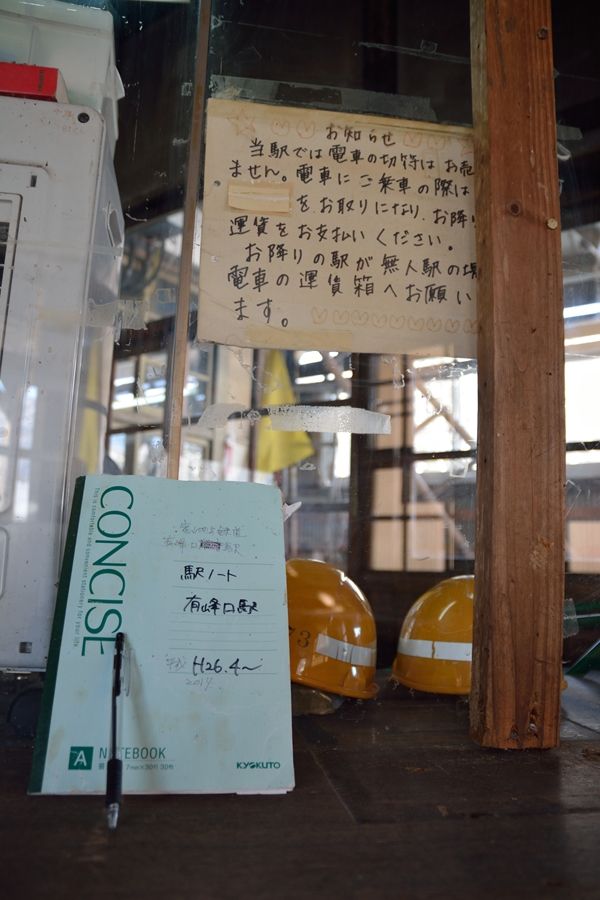 お知らせ
当駅では電車の切符はお売
ません。電車にご乗車の際は
をお取りになり、お降り
運賃をお支払いください。
お降りの駅が無人駅の場
電車の運賃箱へお願い
ます。
CONCISE
This is comfortable and convenient stationery for your life.
有峰口 駅
駅ノート
有峰口駅
平成 H26.4〜
2014
A NOTEBOOK
7mm×30行 30枚
KYOKUTO
73